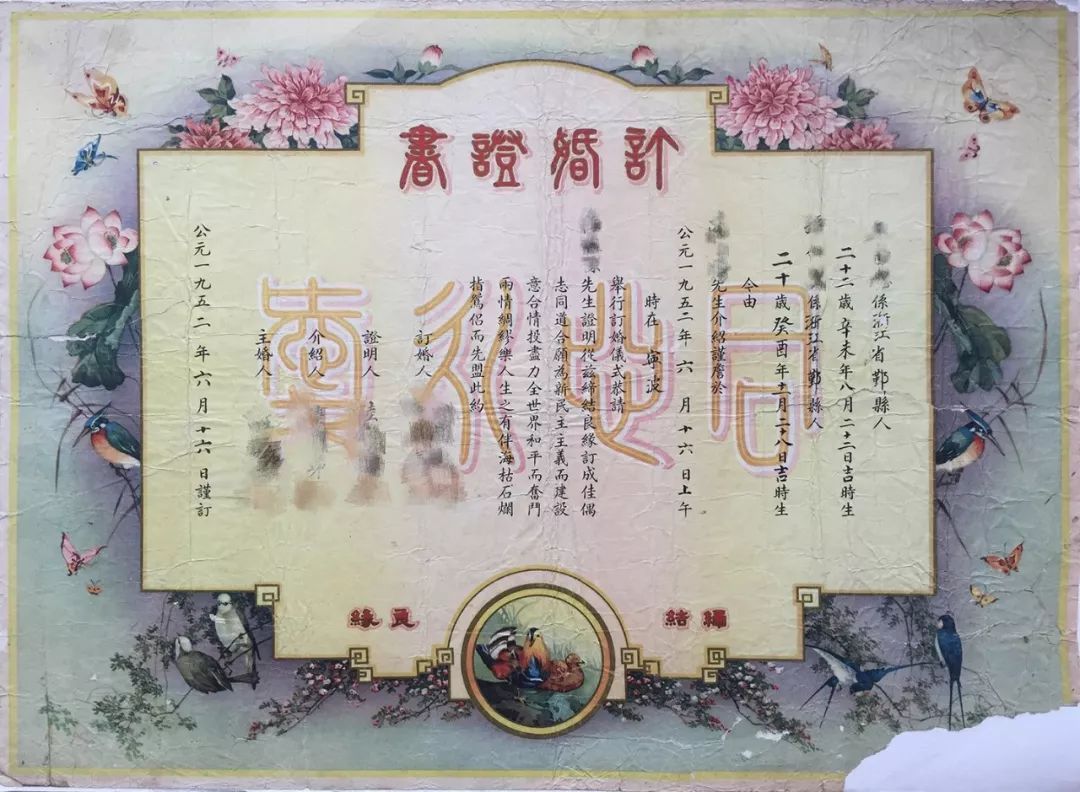 訂婚證書
係浙江省鄞縣人
二十二歲辛未年八月二十二日吉時生
係浙江省鄞縣人
二十歲癸酉年十一月二十八日吉時生
今由
先生介紹謹詹於
公元一九五二年六月十六日上午
時在寧波
舉行訂婚儀式恭請
先生證明從茲締結良緣訂成佳偶
志同道合願為新民主主義而建設
意合情投盡力全世界和平而奮鬥
兩情綢繆樂人生之有伴海枯石爛
指鴛侶而先盟此約
訂婚人
證明人
介紹人
主婚人
公元一九五二年六月十六日謹訂
締結
良緣